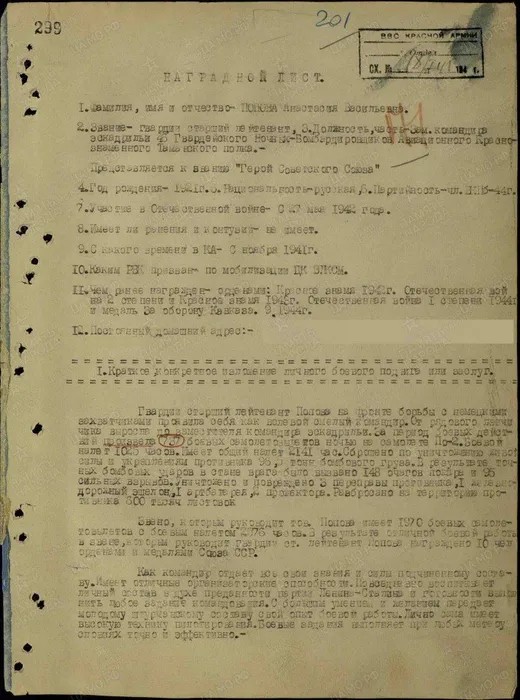 299
201
ВВС КРАСНОЙ АРМИИ
ВХ. №
194 г.
НАГРАДНОЙ ЛИСТ.
1. Фамилия, имя и отчество- ПОПОВА Анастасия Васильевна.
2. Звание- гвардии старший лейтенант, 3. Должность, часть- Зам. командира
эскадрильи 46 Гвардейского Ночных-Бомбардировщиков Авиационного Красно-
знаменного Таманского полка.-
Представляется к званию "Герой Советского Союза"
4. Год рождения- 5. Национальность-русская, 6. Партийность-чл.
7. Участие в Отечественной войне- С 27 мая 1942 года.
8. Имеет ли ранения и контузии- не имеет.
9. С какого времени в КА- С ноября 1941г.
10. Каким РВК призван- по мобилизации ЦК ВЛКСМ.
11. Чем ранее награжден- орденами: Красное знамя 1942г. Отечественная вой
на 2 степени и Красное знамя 1943г. Отечественная война I степени 1944г
и медаль За оборону Кавказа. 1944г.
12. Постоянный домашний адрес:-
I. Краткое конкретное изложение личного боевого подвига или заслуг.
Гвардии старший лейтенант Попова на фронте борьбы с немецкими
захватчинами проявила себя как волевой смелый командир. От рядового летчи
чика выросла до заместителя командира эскадрильи. За период боевых дейст-
вий произвела боевых самолетовылетов ночью на самолете По-2. Боевой
налет часов. Имеет общий налет 2141 час. Сброшено по уничтожению живой
силы и укреплениям противника тонн бомбового груза. В результате точ-
ных бомбовых ударов в стане врага было вызвано 148 очагов пожара и 95
сильных взрывов. Уничтожено и повреждено 3 переправы противника, 1 железно-
дорожный эшелон, 1 артбатарея, 2 прожектора. Разбросано на территорию про-
тивника 600 тысяч листовок
Звено, которым руководит тов. Попова имеет 1970 боевых самоле-
товылетов с боевым налетом 2376 часов. В результате отличной боевой работы
в звене, которым руководит гвардии ст. лейтенант Попова награждено 10 чел
орденами и медалями Союза ССР.
Как командир отдает все свои знания и силы подчиненному соста-
ву. Имеет отличные организаторские способности. Повседневно воспитывает
личный состав в духе преданности партии Ленина-Сталина и готовности выпол
нить любое задание командования. С большим умением и желанием передает
молодому штурманскому составу свой опыт боевой работы. Лично сама имеет
высокую технику пилотирования. Боевые задания выполняет при любых метеоу
словиях точно и эффективно.-